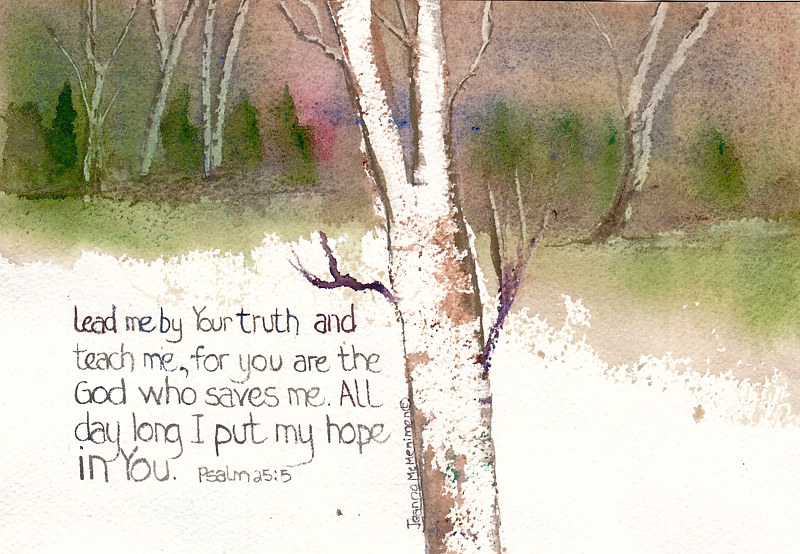 lead me by Your truth and
teach me, for you are the
God who saves me. All
day long I put my hope
in You. Psalm 25:5
Jeanna McMenimen©